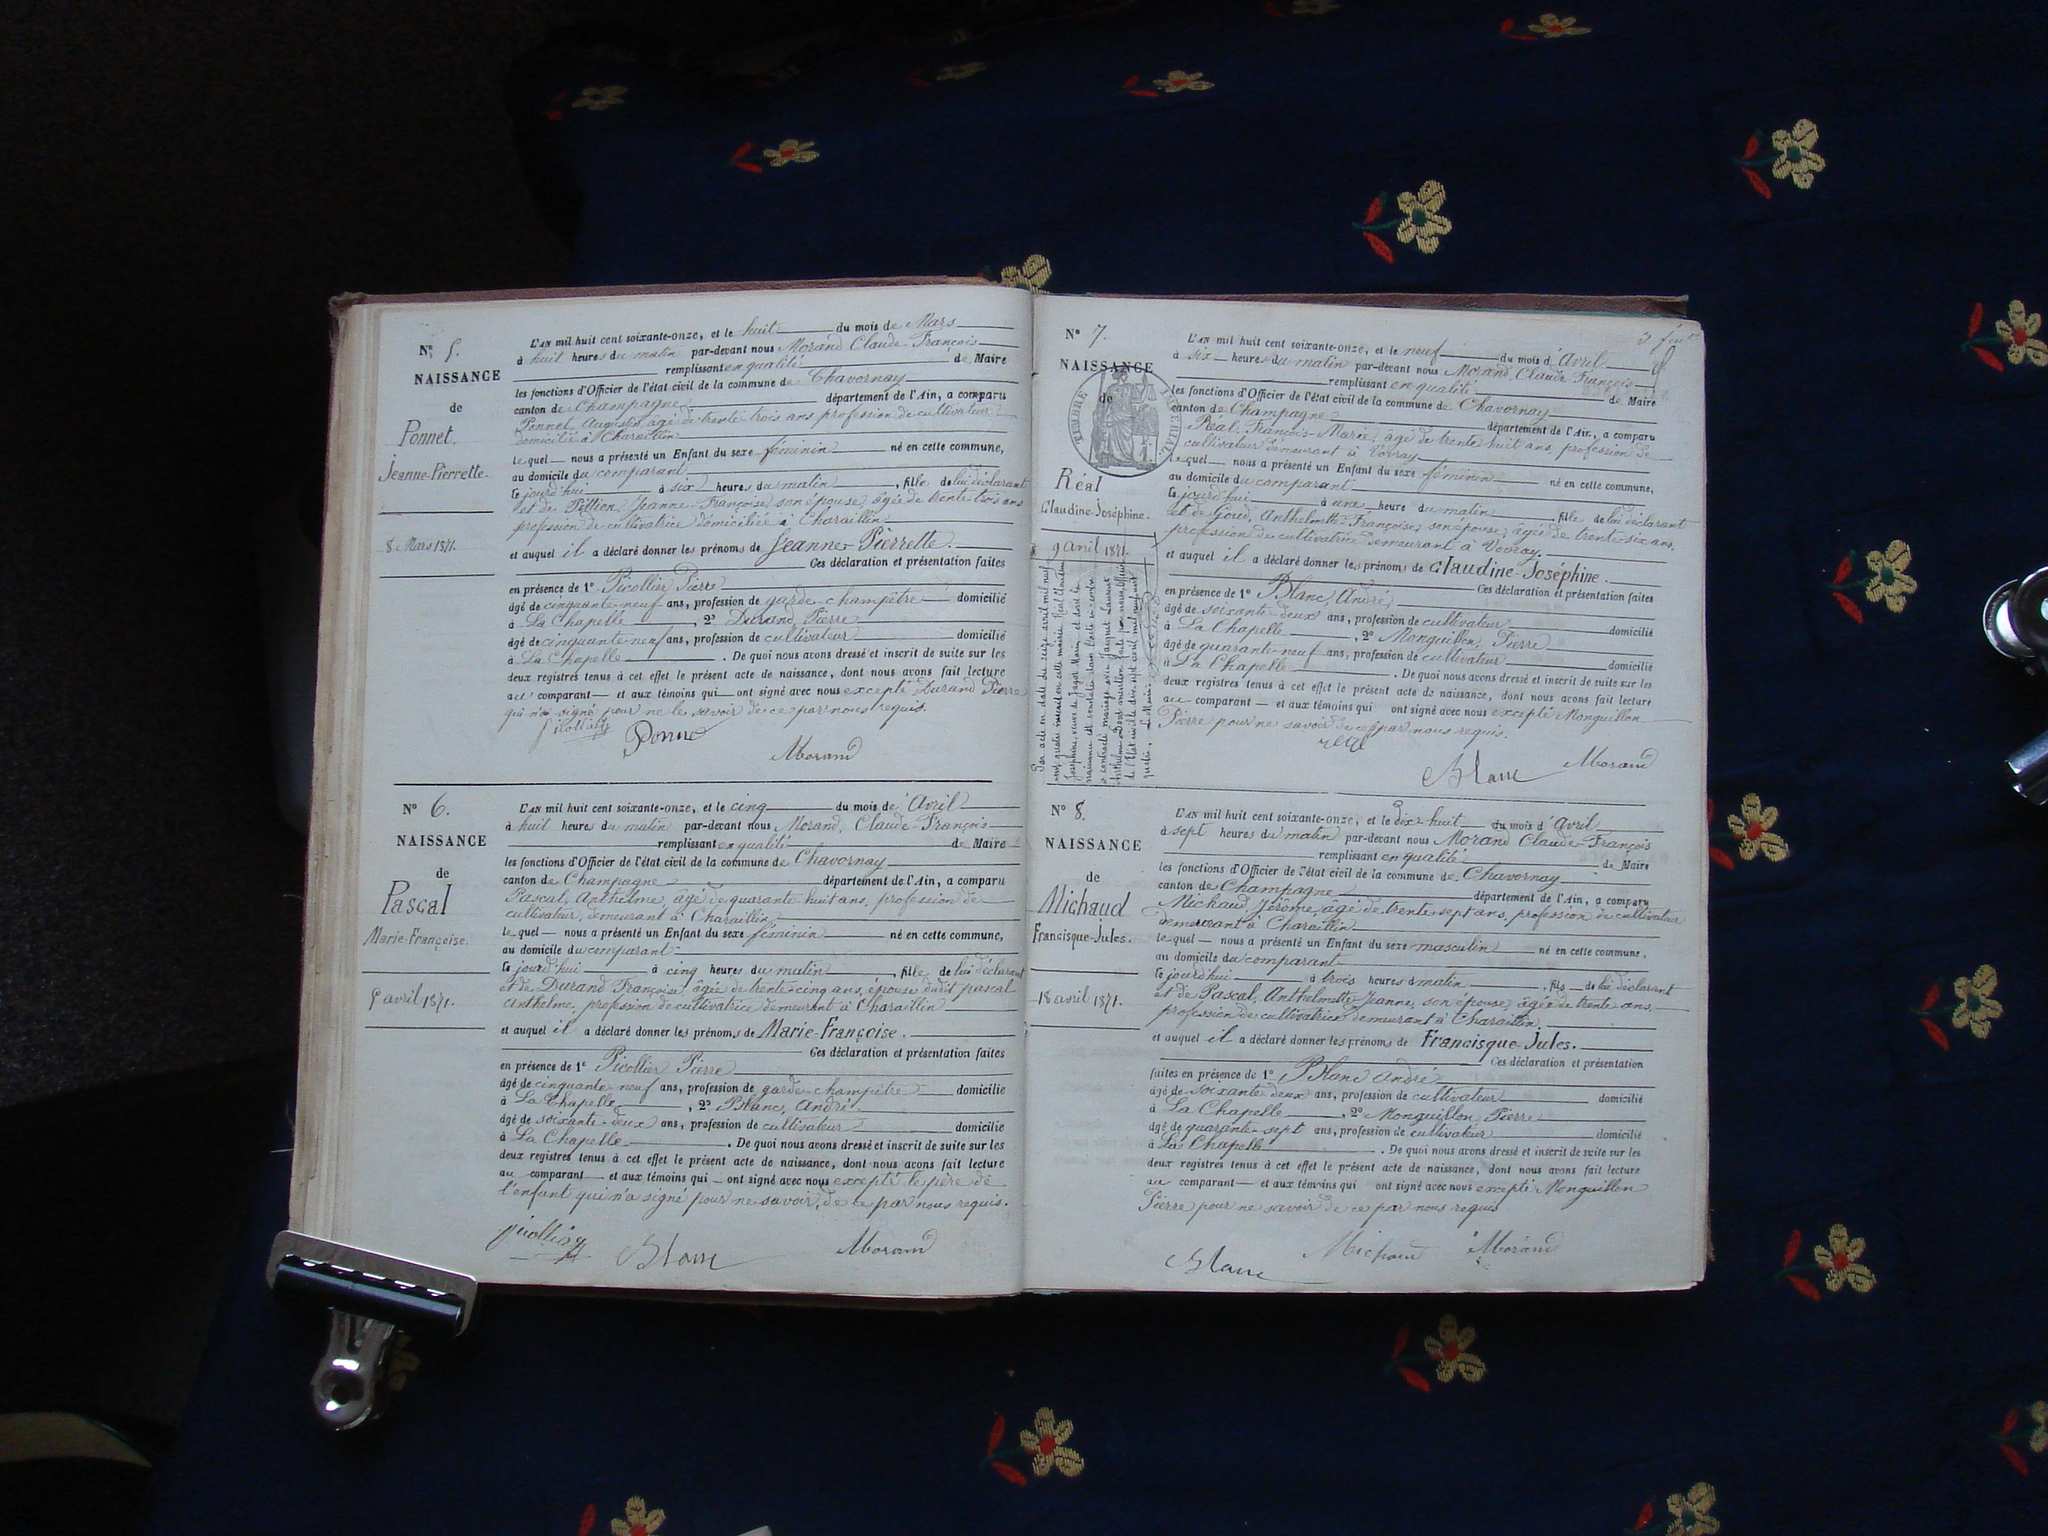 N° 5.
NAISSANCE
de
Ponnet.
Jeanne-Pierrette.
8 Mars 1871.
L'AN mil huit cent soixante-onze, et le huit du mois de Mars
à huit heures du matin par-devant nous Morand Claude François
remplissant en qualité de Maire
les fonctions d'Officier de l'état civil de la commune de Chavornay
canton de Champagne département de l'Ain, a comparu
Ponnet, Augustin, âgé de trente trois ans profession de cultivateur
domicilié à Charaillin
le quel nous a présenté un Enfant du sexe féminin né en cette commune,
au domicile du comparant
le jourd'hui à six heures du matin, fille de lui déclarant
et de Pellion, Jeanne-Françoise, son épouse, âgée de trente-trois ans
profession de cultivatrice domiciliée à Charaillin
et auquel il a déclaré donner les prénoms de Jeanne-Pierrette.
Ces déclaration et présentation faites
en présence de 1° Picollier Pierre
âgé de cinquante-neuf ans, profession de garde-champêtre domicilié
à La Chapelle, 2° Durand, Pierre
âgé de cinquante-neuf ans, profession de cultivateur domicilié
à La Chapelle. De quoi nous avons dressé et inscrit de suite sur les
deux registres tenus à cet effet le présent acte de naissance, dont nous avons fait lecture
au comparant et aux témoins qui ont signé avec nous excepté Durand Pierre
qui n'a signé pour ne le savoir de ce par nous requis.
Morand
N° 6.
NAISSANCE
de
Pascal
Marie-Françoise.
5 avril 1871.
L'AN mil huit cent soixante-onze, et le cinq du mois de Avril
à huit heures du matin par-devant nous Morand, Claude-François
remplissant en qualité de Maire
les fonctions d'Officier de l'état civil de la commune de Chavornay
canton de Champagne département de l'Ain, a comparu
Pascal, Anthelme, âgé de quarante huit ans, profession de
cultivateur, demeurant à Charaillin
le quel nous a présenté un Enfant du sexe féminin né en cette commune,
au domicile du comparant
le jourd'hui à cinq heures du matin, fille de lui déclarant
et de Durand Françoise, âgée de trente-cinq ans, épouse dudit pascal
Anthelme, profession de cultivatrice demeurant à Charaillin
et auquel il a déclaré donner les prénoms de Marie-Françoise.
Ces déclaration et présentation faites
en présence de 1° Picollier Pierre
âgé de cinquante neuf ans, profession de garde-champêtre domicilié
à La Chapelle, 2° Blanc, André
âgé de soixante-deux ans, profession de cultivateur domicilié
à La Chapelle. De quoi nous avons dressé et inscrit de suite sur les
deux registres tenus à cet effet le présent acte de naissance, dont nous avons fait lecture
au comparant et aux témoins qui ont signé avec nous excepté le père de
l'enfant qui n'a signé pour ne savoir, de ce par nous requis.
Blanc Morand
N° 7.
NAISSANCE
de
TIMBRE IMPERIAL
Réal
Claudine-Joséphine.
9 avril 1871.
L'AN mil huit cent soixante-onze, et le neuf du mois d'Avril
à six heures du matin par-devant nous Morand Claude François
remplissant en qualité de Maire
les fonctions d'Officier de l'état civil de la commune de Chavornay
canton de Champagne département de l'Ain, a comparu
Réal, François-Marie, âgé de trente huit ans, profession de
cultivateur demeurant à Vovray
le quel nous a présenté un Enfant du sexe féminin né en cette commune,
au domicile du comparant
le jourd'hui à une heure du matin, fille de lui déclarant
et de Goud, Anthelmette-Françoise, son épouse, âgée de trente-six ans,
profession de cultivatrice demeurant à Vovray.
et auquel il a déclaré donner les prénoms de Claudine-Joséphine.
Ces déclaration et présentation faites
en présence de 1° Blanc, André,
âgé de soixante-deux ans, profession de cultivateur domicilié
à La Chapelle, 2° Monguillon, Pierre
âgé de quarante-neuf ans, profession de cultivateur domicilié
à La Chapelle. De quoi nous avons dressé et inscrit de suite sur les
deux registres tenus à cet effet le présent acte de naissance, dont nous avons fait lecture
au comparant et aux témoins qui ont signé avec nous excepté Monguillon
Pierre pour ne savoir de ce par nous requis.
Blanc Morand
N° 8.
NAISSANCE
de
Michaud
Francisque-Jules.
18 avril 1871.
L'AN mil huit cent soixante-onze, et le dix-huit du mois d'Avril
à sept heures du matin par-devant nous Morand Claude-François
remplissant en qualité de Maire
les fonctions d'Officier de l'état civil de la commune de Chavornay
canton de Champagne département de l'Ain, a comparu
Michaud Jérôme, âgé de trente-sept ans, profession de cultivateur
demeurant à Charaillin
le quel nous a présenté un Enfant du sexe masculin né en cette commune,
au domicile du comparant
le jourd'hui à trois heures du matin, fils de lui déclarant
et de Pascal, Anthelmette Jeanne, son épouse, âgée de trente ans,
profession de cultivatrice demeurant à Charaillin.
et auquel il a déclaré donner les prénoms de Francisque-Jules.
Ces déclaration et présentation
faites en présence de 1° Blanc André
âgé de soixante deux ans, profession de cultivateur domicilié
à La Chapelle, 2° Monguillon, Pierre
âgé de quarante-sept ans, profession de cultivateur domicilié
à La Chapelle. De quoi nous avons dressé et inscrit de suite sur les
deux registres tenus à cet effet le présent acte de naissance, dont nous avons fait lecture
au comparant et aux témoins qui ont signé avec nous excepté Monguillon
Pierre pour ne savoir de ce par nous requis
Blanc Michaud Morand